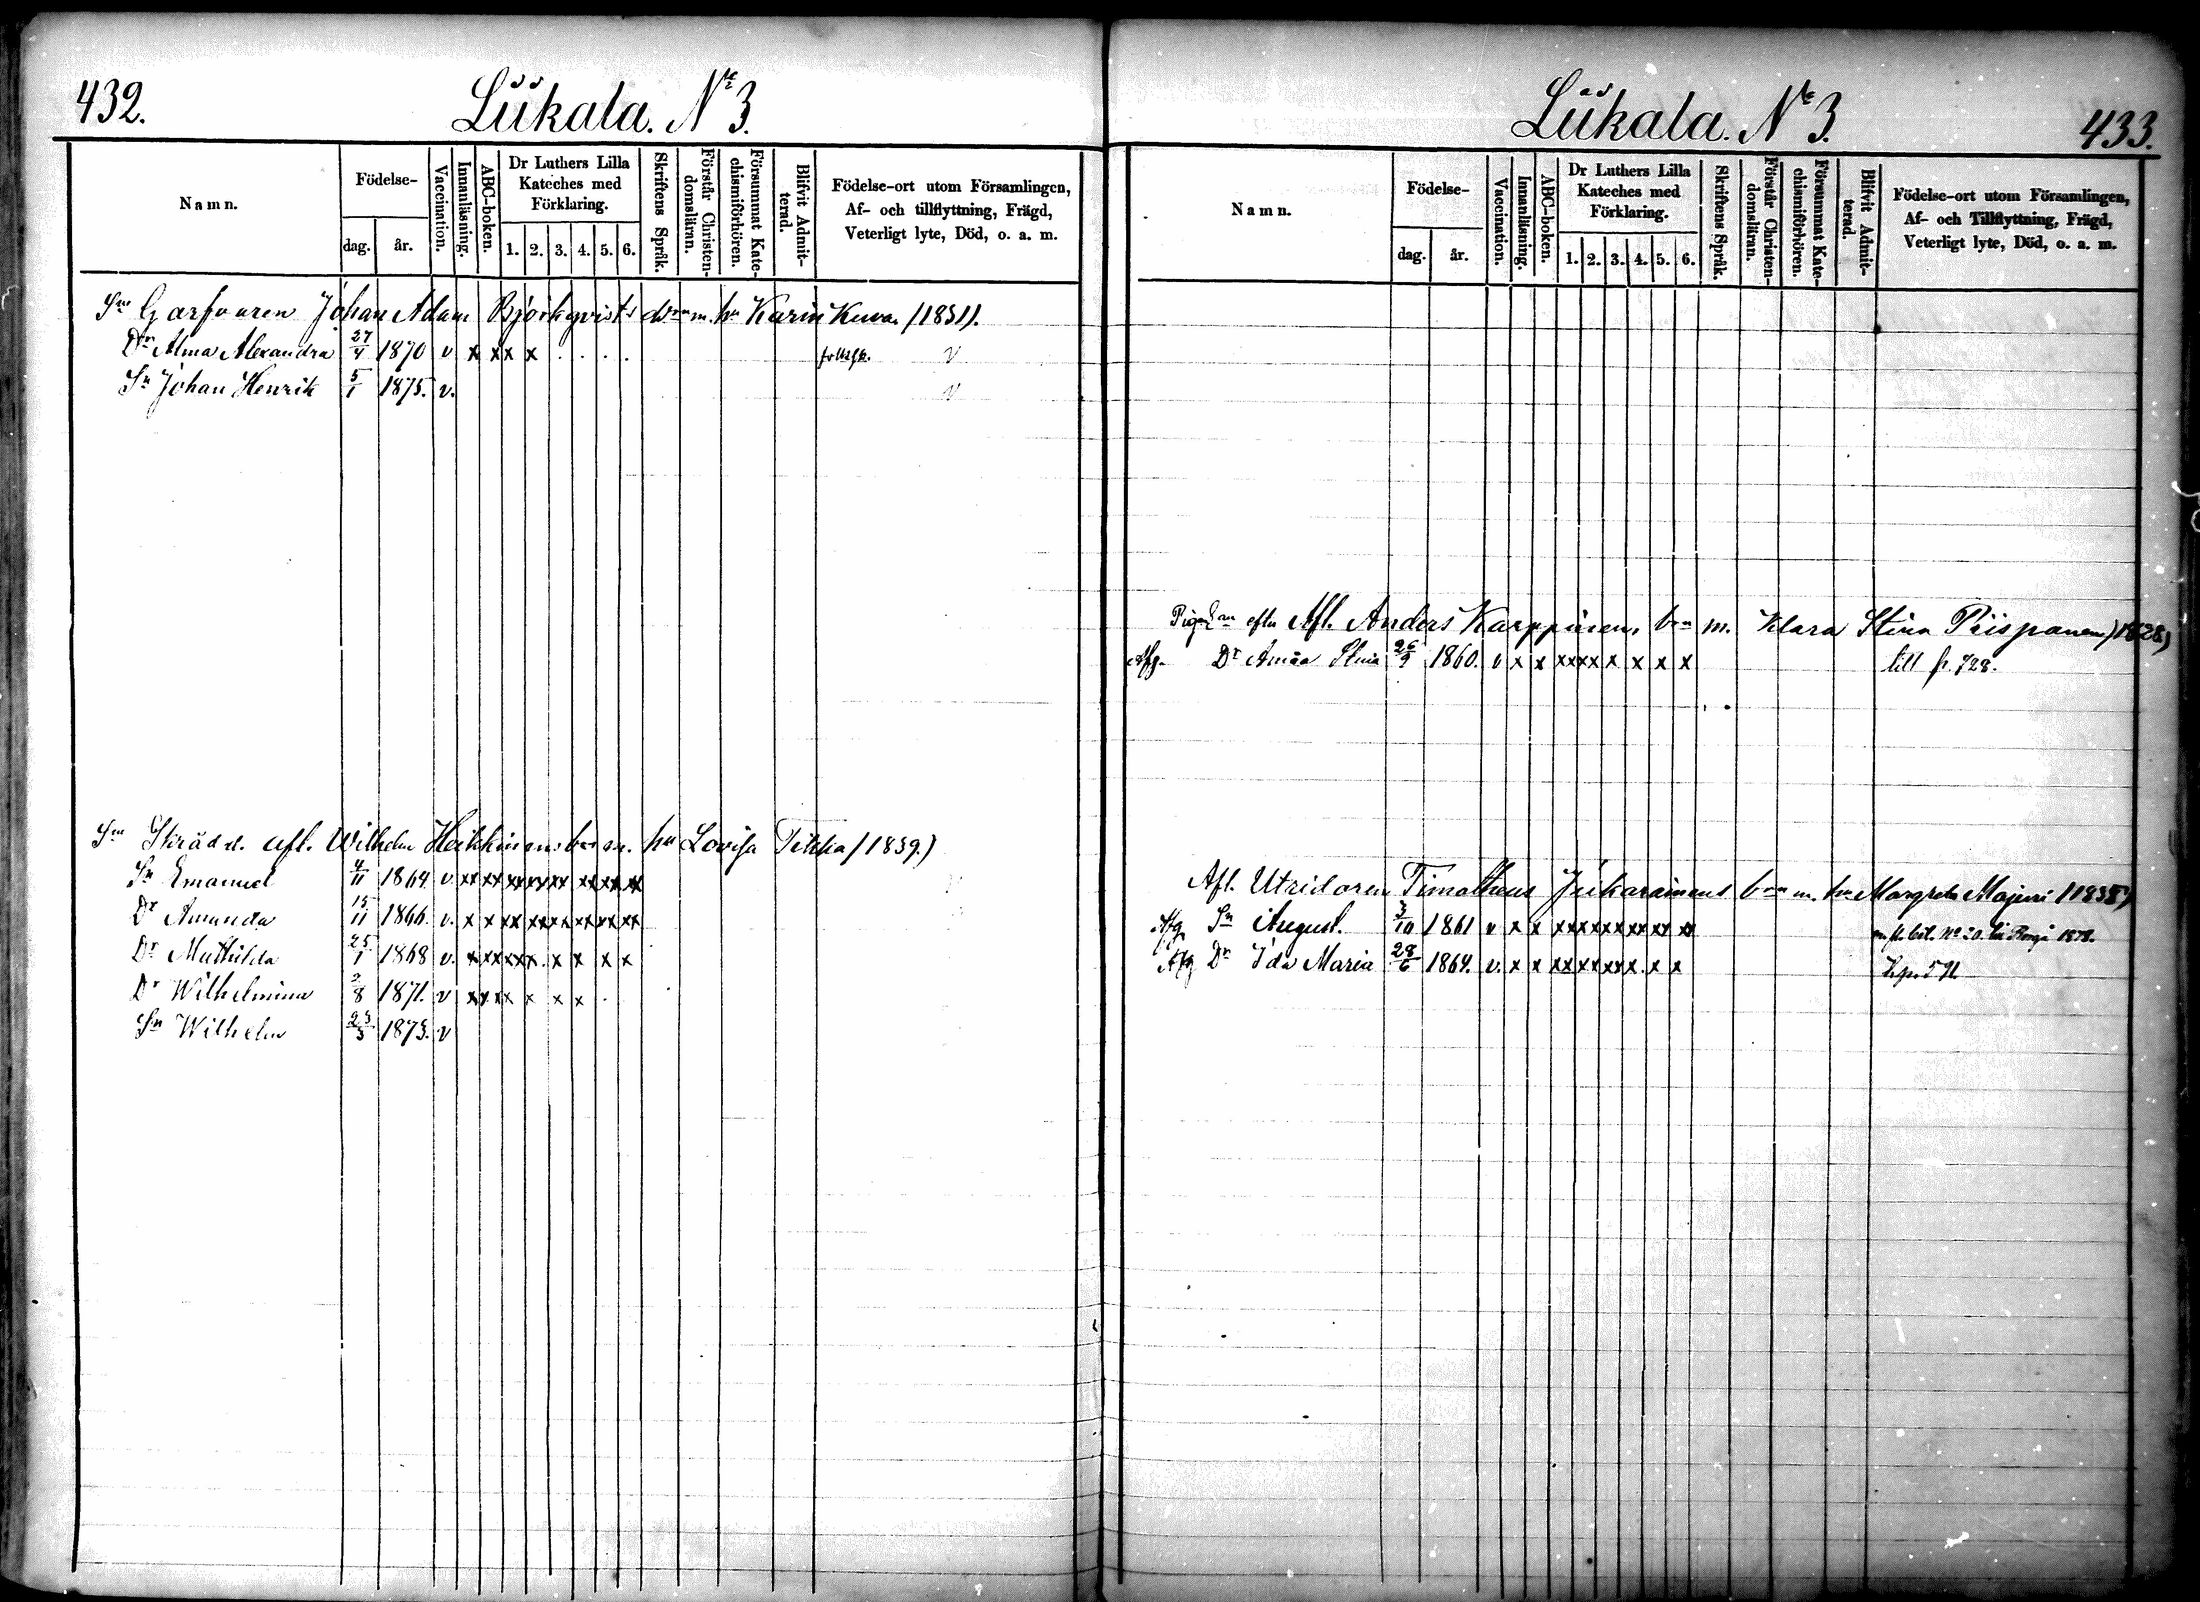 432.
Liikala. No 3.
Namn.
Födelse-
dag.
år.
Vaccination.
Innanläsning.
ABC-boken.
Dr Luthers Lilla
Kateches med
Förklaring.
1. 2. 3. 4. 5. 6.
Skriftens Språk.
Förstår Christen-
domsläran.
Försummat Kate-
chismiförhören.
Blifvit Admit-
terad.
Födelse-ort utom Församlingen,
Af- och tillflyttning, Frägd,
Veterligt lyte, Död, o. a. m.
Sm Garfvaren Johan Adam Björkqvists m. hu Karin Kuva (1851).
Dr Alma Alexandra 27/4 1870 v x xx x . . . . v
Sn Johan Henrik 5/1 1875. v. v
Sm Strädd. afl. Wilhelm Heikkinens bn m. hu Lovisa Tikka (1839.)
Sn Emanuel 4/11 1864 v xx xx xx xx xx xx xx xx
Dr Amanda 15/11 1866. v. x x xx xx xx xx xx xx
Dr Mathilda 25/1 1868 v. xx xx xx x x x x
Dr Wilhelmina 2/8 1871. v xx xx x x x .
Sn Wilhelm 23/3 1873. v
Liikala. No 3.
433.
Namn.
Födelse-
dag.
år.
Vaccination.
Innanläsning.
ABC-boken.
Dr Luthers Lilla
Kateches med
Förklaring.
1. 2. 3. 4. 5. 6.
Skriftens Språk.
Förstår Christen-
domsläran.
Försummat Kate-
chismiförhören.
Blifvit Admit-
terad.
Födelse-ort utom Församlingen,
Af- och Tillflyttning, Frägd,
Veterligt lyte, Död, o. a. m.
Afl. Anders Karppinens bn m. Klara Stina Piispanen (1828)
Afg. Dr Anna Stina 26/9 1860. v x x xx xx x x x x till p. 728.
Afl. Utridaren Timotheus Jukarainens bn m. hu Margreta Majuri (1835)
Afg. Sn August. 3/10 1861 v x x xx xx xx xx xx xx Borgå 1878.
Afg Dr Ida Maria 28/6 1864. v. x x xx xx xx x. x x